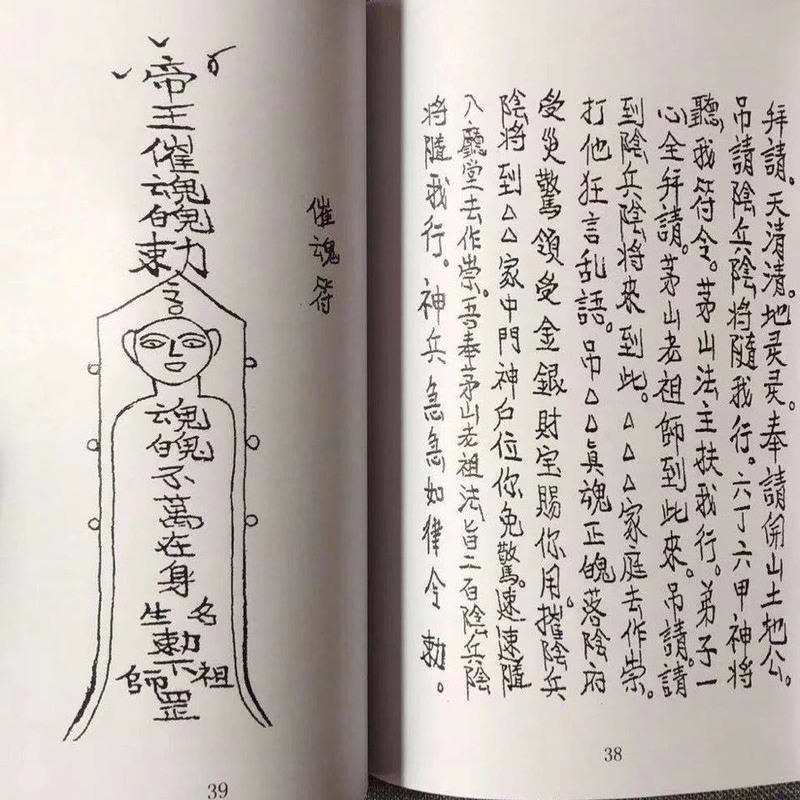 拜請。天清清。地灵灵。奉請開山土地公。
吊請陰兵陰將隨我行。六丁六甲神將
聽我符令。茅山法主扶我行。弟子一
心全拜請。茅山老祖師到此來。吊請請
到陰兵陰將來到此。△△△家庭去作祟。
打他狂言乱語。吊△△真魂正魄落陰府
受災驚領受金銀財宝賜你用。摧陰兵
陰將到△△家中門神户位你免驚。速速隨
入廳堂去作祟。吾奉茅山老祖法旨二百陰兵陰
將隨我行。神兵急急如律令勅。
38
催魂符
帝王催魂魄勅
魂魄不萬在身
名
生
勅下罡
祖
師
39